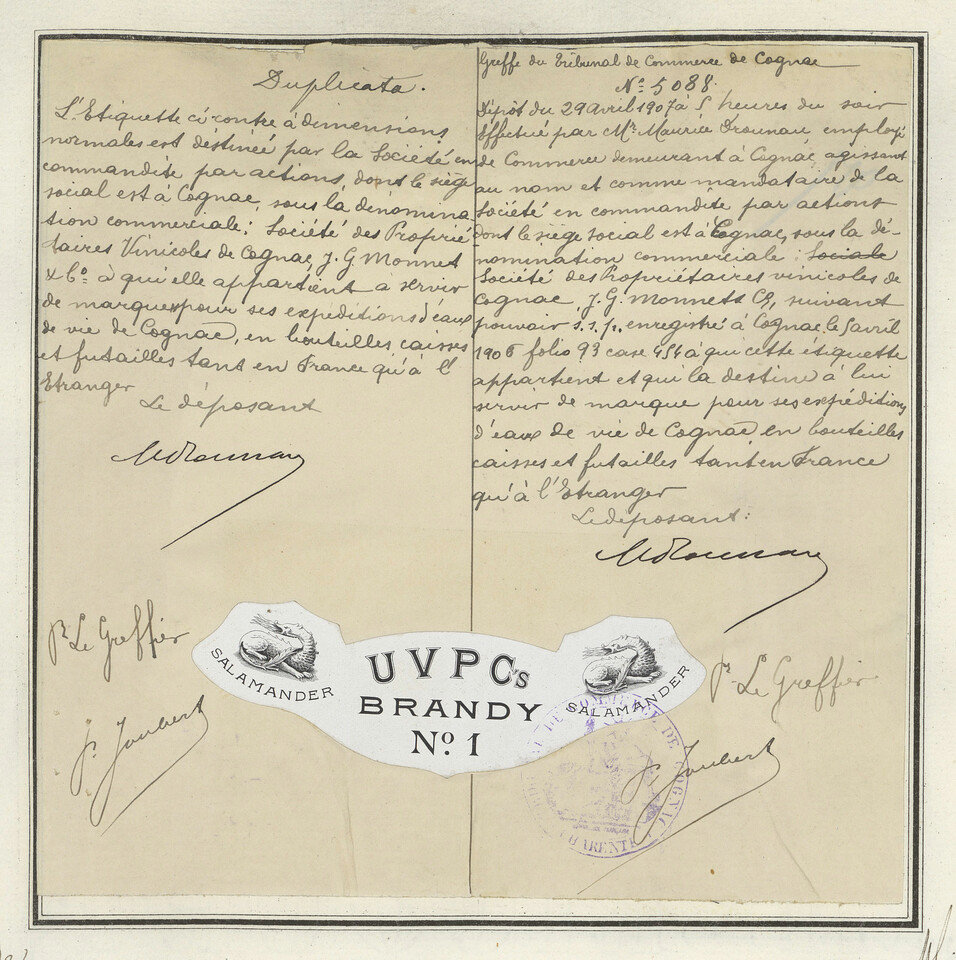 Duplicata.
L'Etiquette ci contre à dimensions
normales est destinée par la Société en
commandite par actions, dont le siège
social est à Cognac, sous la dénomina
tion commerciale: Société des Proprié
taires Vinicoles de Cognac, J. G. Monnet
& Co à qui elle appartient a servir
de marque pour ses expéditions d'eaux
de vie de Cognac, en bouteilles, caisses
et futailles tant en France qu'à l'
Etranger
Le déposant
Greffe du Tribunal de Commerce de Cognac
No 5088.
Dépôt du 29 avril 1907 à 5 heures du soir
Effectué par Mr Maurice Drounau employé
de Commerce demeurant à Cognac, agissant
au nom et comme mandataire de la
Société en commandite par actions
dont le siège social est à Cognac, sous la dé-
nomination commerciale : Sociale
Société des Propriétaires vinicoles de
Cognac, J. G. Monnet & Co, suivant
pouvoir s.s.p. enregistré à Cognac, le 5 avril
1906 folio 93 case 454 à qui cette étiquette
appartient et qui la destine à lui
servir de marque pour ses expéditions
d'eaux de vie de Cognac en bouteilles
caisses et futailles tant en France
qu'à l'Etranger
Le déposant:
Pr Le Greffier
J. Joubert
SALAMANDER
UVPC's
BRANDY
No. 1
SALAMANDER
Pr Le Greffier
J. Joubert
DE COMMERCE DE COGNAC
CHARENTE